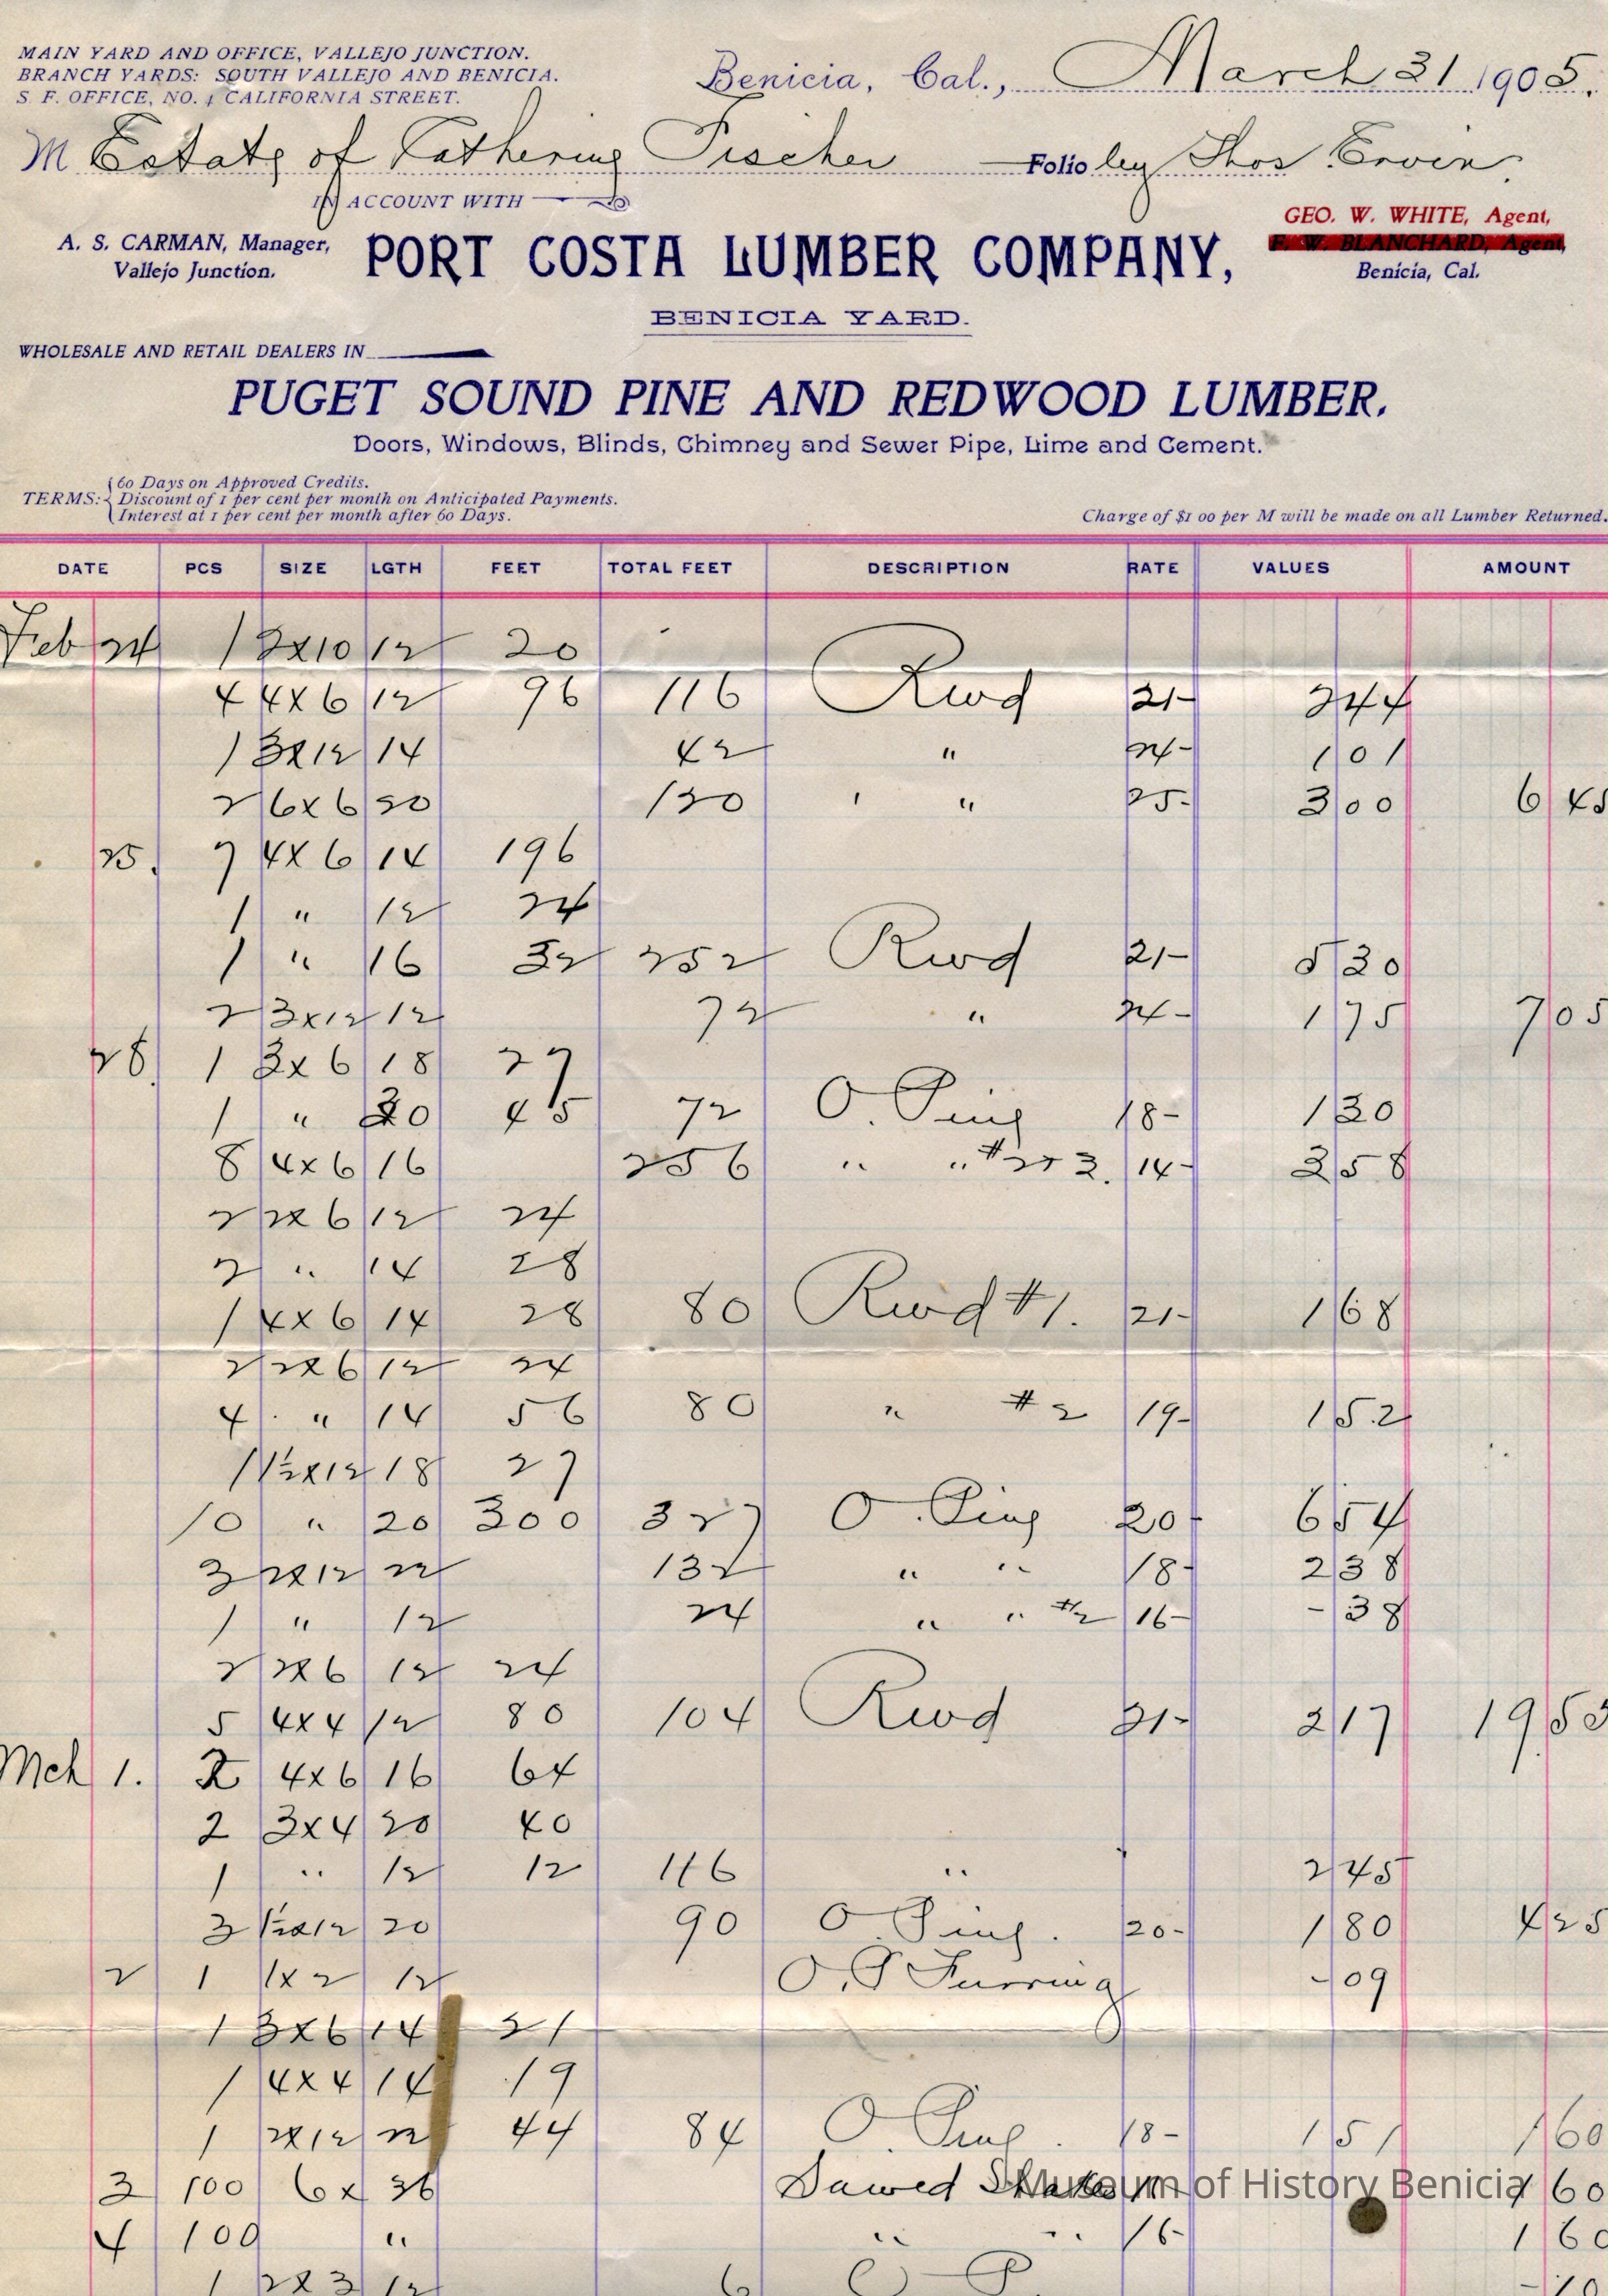 MAIN YARD AND OFFICE, VALLEJO JUNCTION.
BRANCH YARDS: SOUTH VALLEJO AND BENICIA.
S. F. OFFICE, NO. 4 CALIFORNIA STREET.
Benicia, Cal., March 31 1905.
M Estate of Catherine Fischer Folio by Thos Ervin.
IN ACCOUNT WITH
GEO. W. WHITE, Agent,
F. W. BLANCHARD, Agent,
Benicia, Cal.
A. S. CARMAN, Manager,
Vallejo Junction.
PORT COSTA LUMBER COMPANY,
BENICIA YARD.
WHOLESALE AND RETAIL DEALERS IN
PUGET SOUND PINE AND REDWOOD LUMBER.
Doors, Windows, Blinds, Chimney and Sewer Pipe, Lime and Cement.
TERMS: 60 Days on Approved Credits.
Discount of 1 per cent per month on Anticipated Payments.
Interest at 1 per cent per month after 60 Days.
Charge of $1 00 per M will be made on all Lumber Returned.
DATE PCS SIZE LGTH FEET TOTAL FEET DESCRIPTION RATE VALUES AMOUNT
Feb 24 1 2x10 12 20
4 4x6 12 96 116 Rwd 21- 2 44
1 3x12 14 42 " 24- 1 01
2 6x6 20 120 " 25- 3 00 6 45
25. 7 4x6 14 196
1 " 12 24
1 " 16 32 252 Rwd 21- 5 30
2 3x12 12 72 " 24- 1 75 7 05
28 1 3x6 18 27
1 " 30 45 72 O. Pine 18- 1 30
8 4x6 16 256 " " #2+3. 14- 3 58
2 2x6 12 24
2 " 14 28
1 4x6 14 28 80 Rwd #1. 21- 1 68
2 2x6 12 24
4 " 14 56 80 " #2 19- 1 52
1 1½x12 18 27
10 " 20 300 327 O. Pine 20- 6 54
3 2x12 22 132 " " 18- 2 38
1 " 12 24 " " #2 16- - 38
2 2x6 12 24
5 4x4 12 80 104 Rwd 21- 2 17 19 55
Mch 1. 2 4x6 16 64
2 3x4 20 40
1 " 12 12 116 " 2 45
3 1½x12 20 90 O Pine. 20- 1 80 4 25
2 1 1x2 12 O. P Furring - 09
1 3x6 14 21
1 4x4 14 19
1 2x12 22 44 84 O. Pine. 18- 1 51 1 60
3 100 6x36 Sawed Shakes 1 60
4 100 " " " 16- 1 60
1 2x3 12 6 O P
Museum of History Benicia